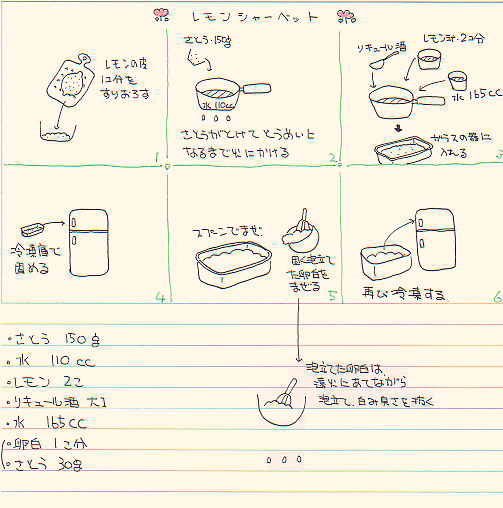 レモンシャーベット
レモンの皮
1コ分を
すりおろす
1
さとう・150g
水 110cc
さとうがとけて とうめいに
なるまで火にかける
2
リキュール酒
レモン汁・2コ分
水 165cc
ガラスの器に
入れる
3
冷凍庫で
固める
4
スプーンでまぜ
固く泡立て
た卵白を
まぜる
5
再び冷凍する
6
・さとう 150g
・水 110cc
・レモン 2コ
・リキュール酒 大1
・水 165cc
・卵白 1コ分
・さとう 30g
泡立てた卵白は、
遠火にあてながら
泡立て、白み臭さを抜く